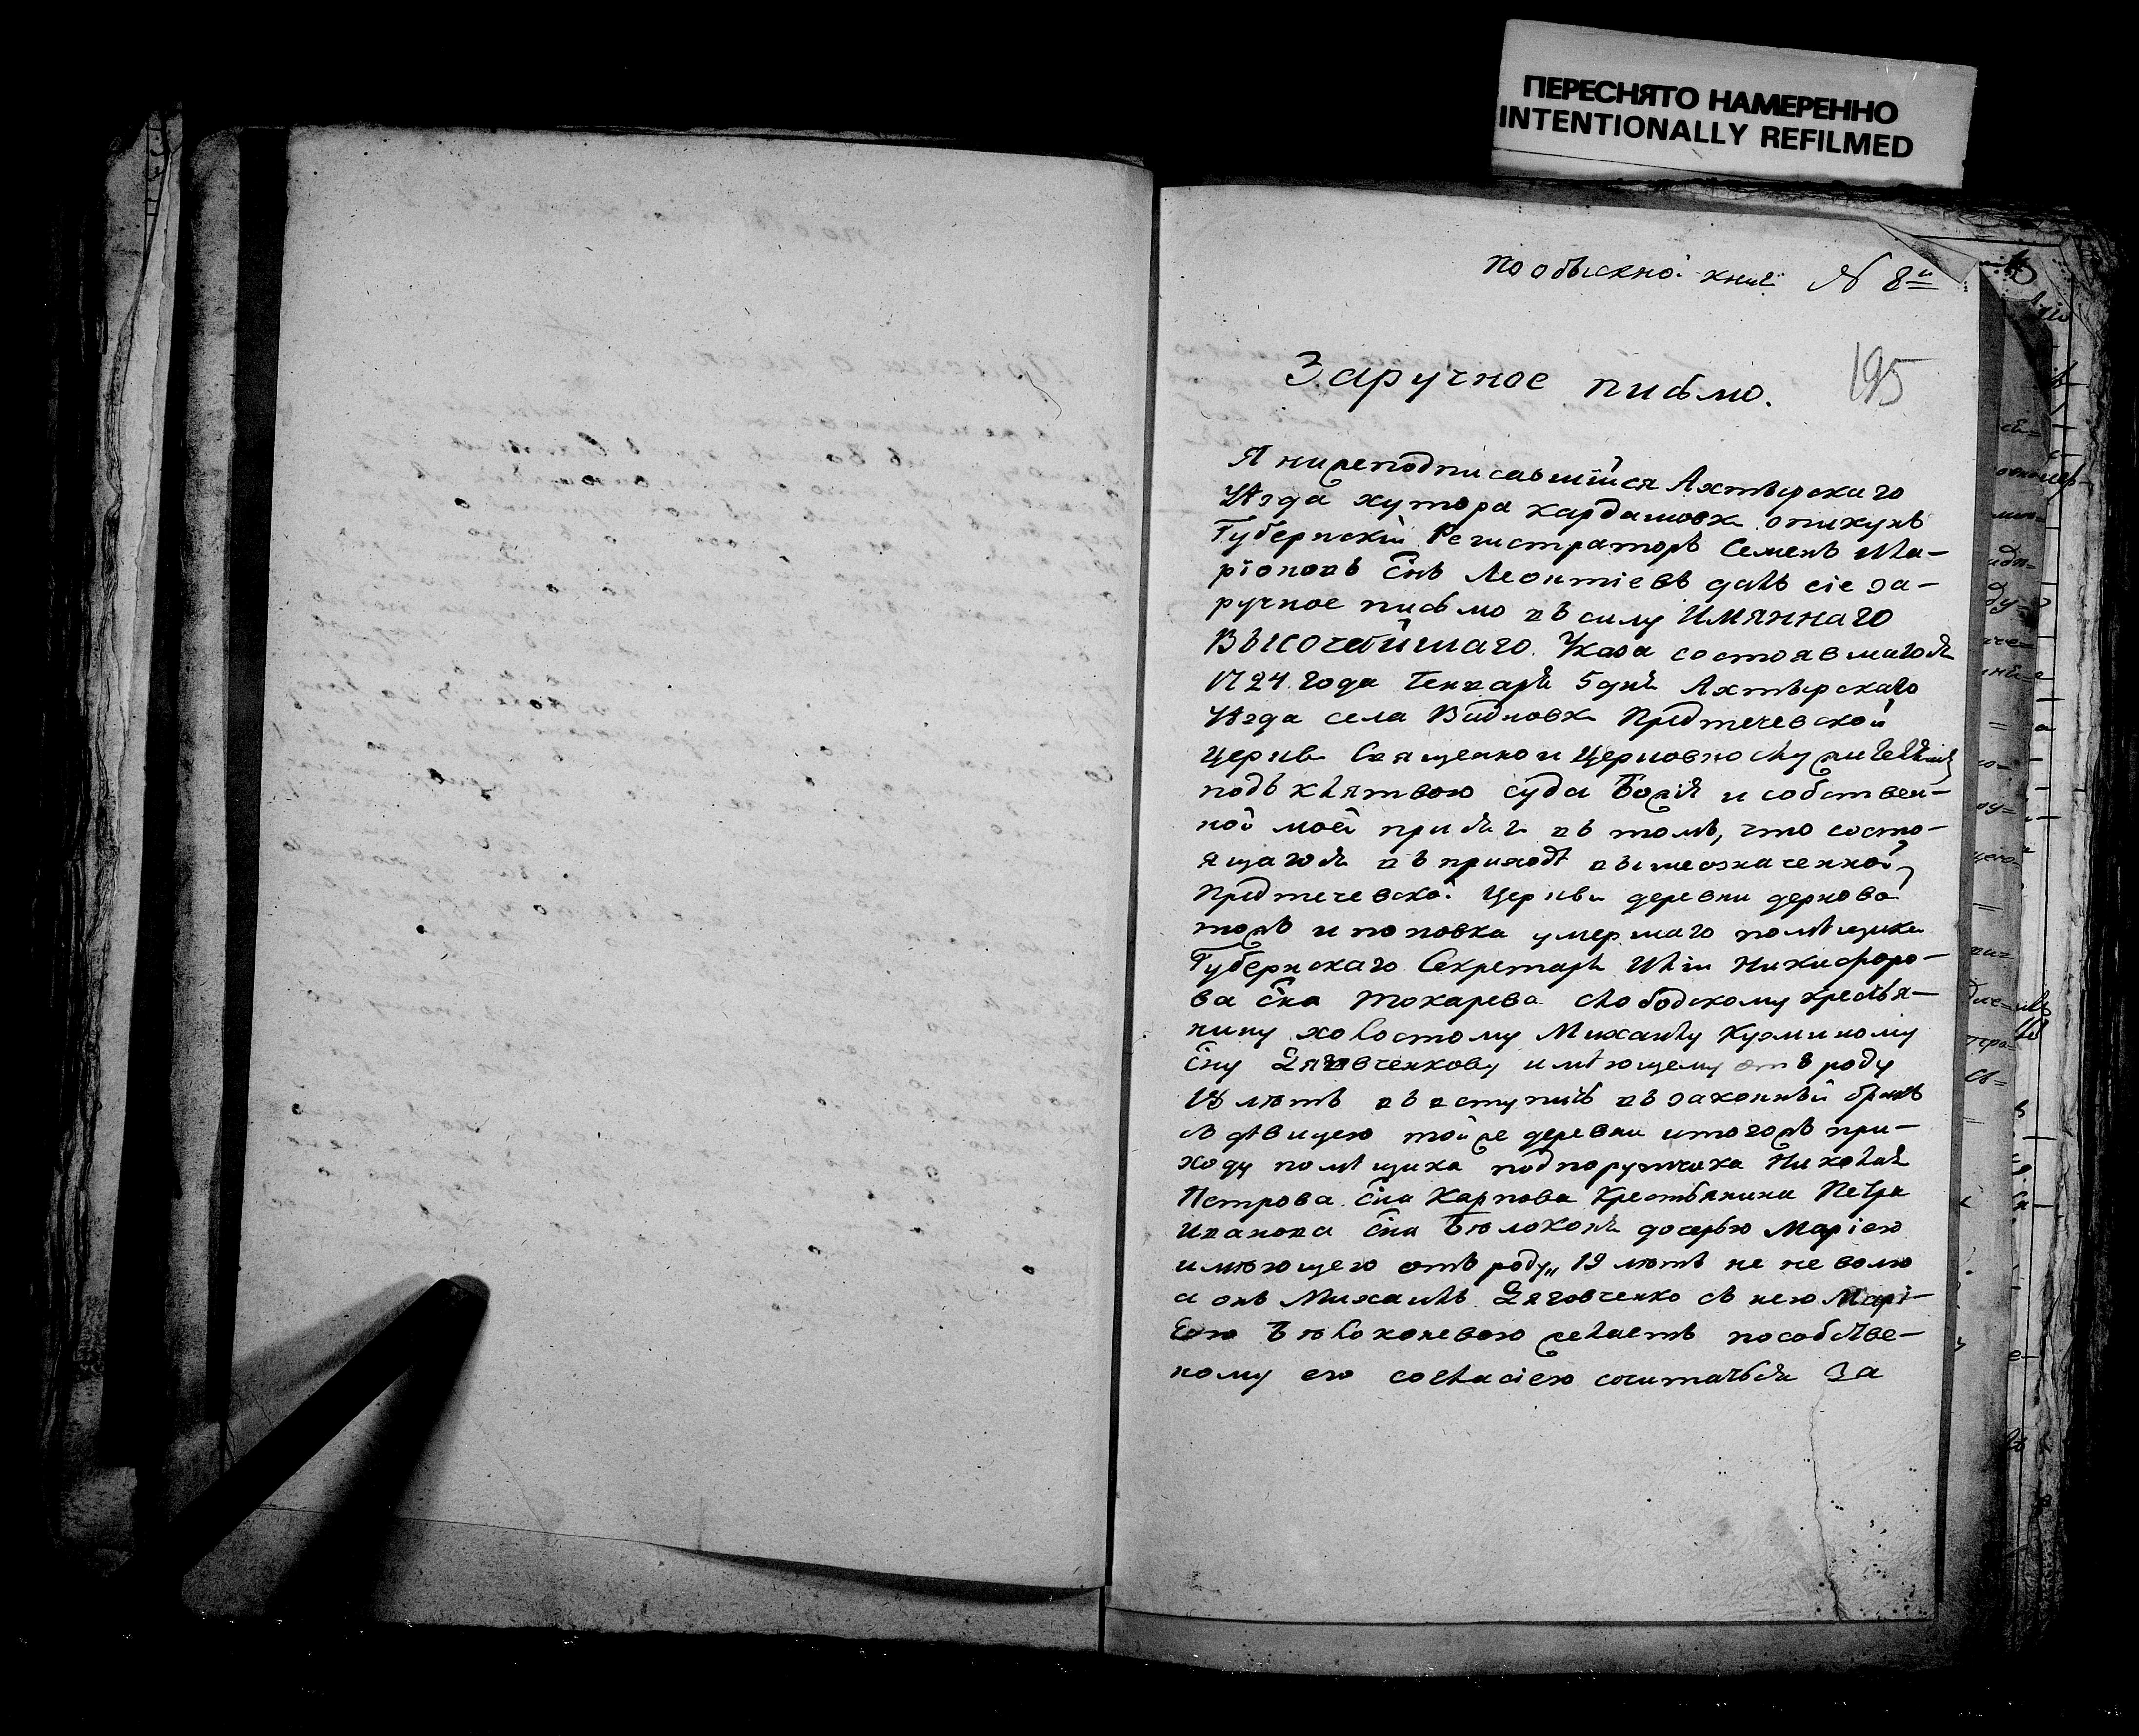 ПЕРЕСНЯТО НАМЕРЕННО
INTENTIONALLY REFILMED
по обыскной книгѣ № 8й
195
Заручное письмо.
Я нижеподписавшійся Ахтырскаго
Уѣзда хутора кардашовки опикунъ
Губернскій Регистраторъ Семенъ Ила-
ріоновъ Сн̃ъ Леонтіевъ далъ сіе за-
ручное письмо въ силу ИМЯННАГО
ВЫСОЧАЙШАГО Указа состоявшагося
1724 года Генваря 5 дня Ахтырскаго
Уѣзда села Видновки Предтечевской
Церкви Священно и Церковно служителямъ
подъ клятвою суда Божія и собствен-
ной моей присяги въ томъ, что состо-
ящагося въ приходѣ вышеозначенной
Предтечевской Церкви деревни дерновá
тожъ и поповка умершаго помѣщика
Губернскаго Секретаря Ильи Никифоро-
ва сн̃а Токарева слободскому крестья-
нину холостому Михаилу Кузминому
Сн̃у Дяговченкову имѣющему отъ роду
18 лютъ въ вступить въ законный бракъ
съ дѣвицею той же деревни итогожъ при-
ходу помѣщика подпорутчика Николая
Петрова Сн̃а Карпова Крестьянина Петра
Иванова Сн̃а Бюлоконя дочерью Маріею
имюющею отъ роду 19 лютъ не не волю
а онъ Михаилъ Дяговченко съ нею Марі-
Ею Бюлоконевою желаетъ пособстве-
ному его согласіею сочитаться За